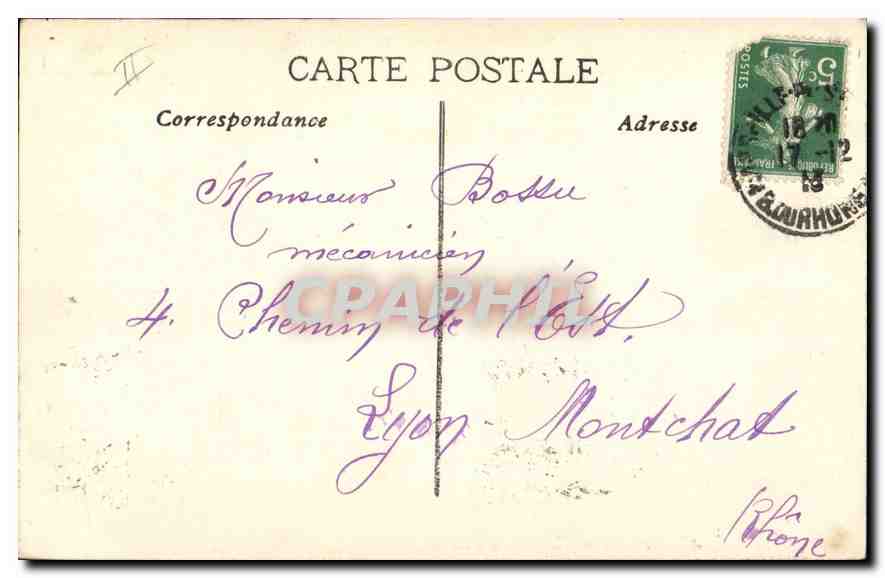 II
CARTE POSTALE
Correspondance
Adresse
5c
POSTES
REPUBLIQUE FRANÇAISE
18
17-12
13
BOURHONNE
Monsieur Bossu
mécanicien
CPAPHIL
4. Chemin de l'Est.
Lyon Montchat
Rhône